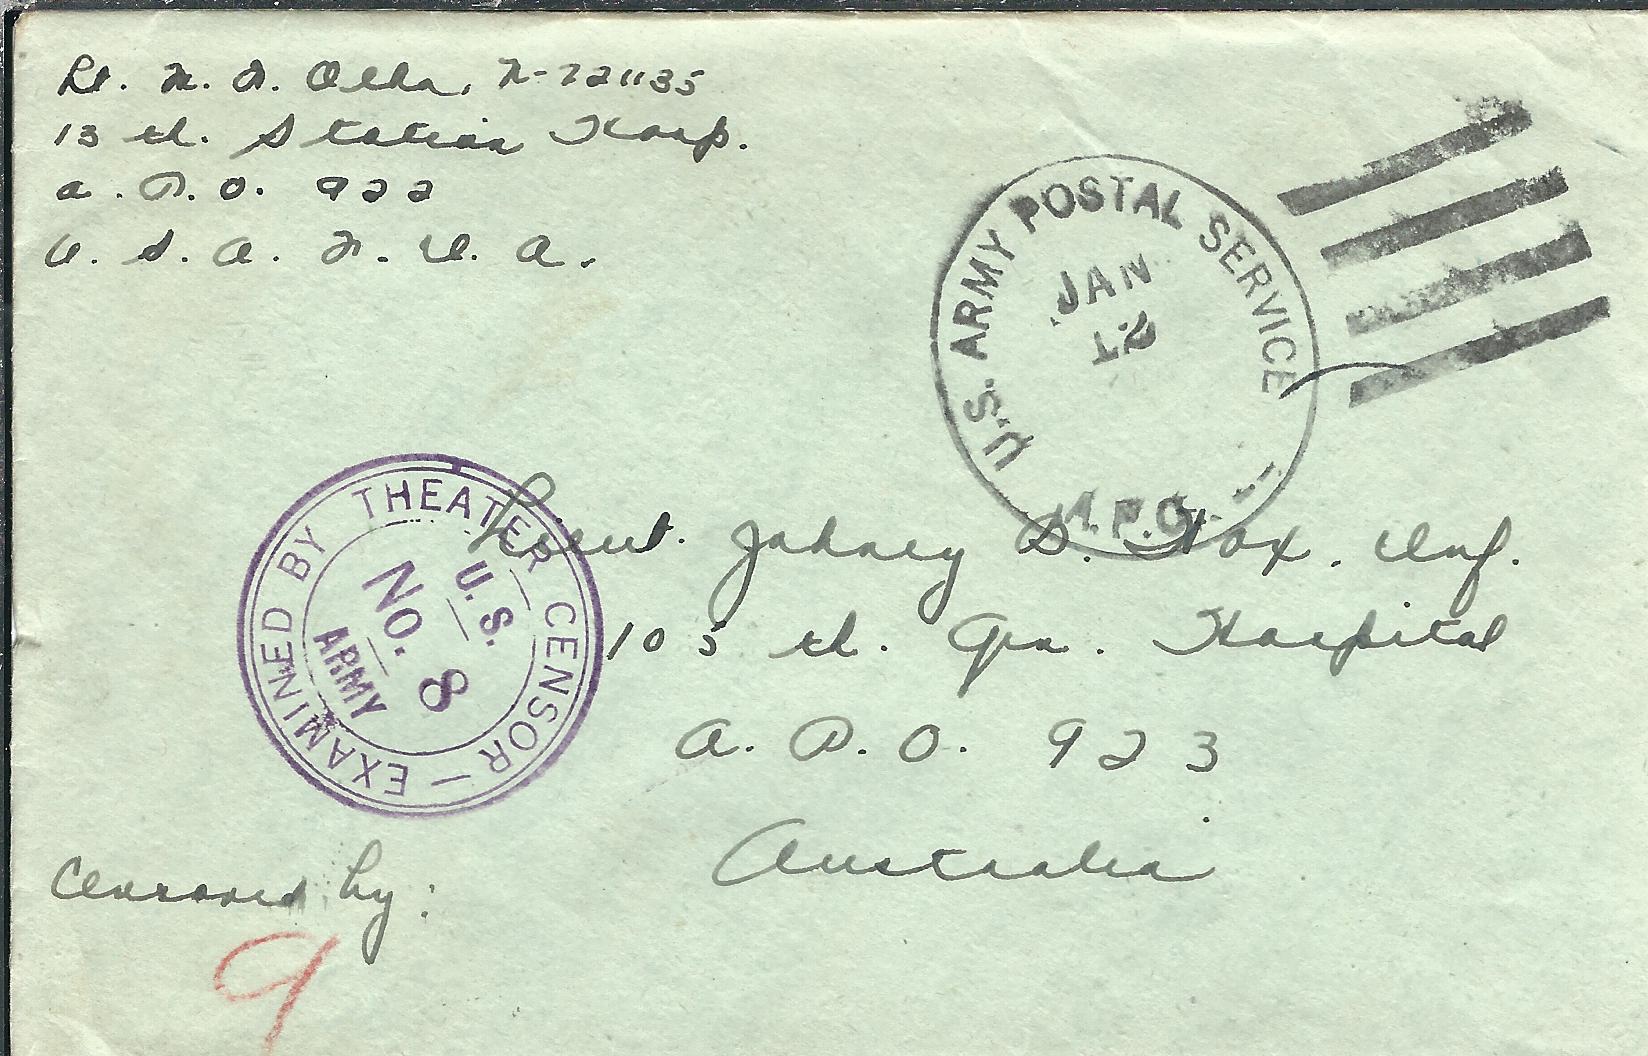 Lt. M. F. Olda, N-721135
13 th. Station Hosp.
A. P. O. 922
U. S. A. F. I. A.
U.S. ARMY POSTAL SERVICE
JAN
12
A.P.O.
EXAMINED BY THEATER CENSOR
U.S.
No. 8
ARMY
Lieut. Johney D. Fox. Inf.
105 th. Gn. Hospital
A. P. O. 923
Australia
Censored by:
9